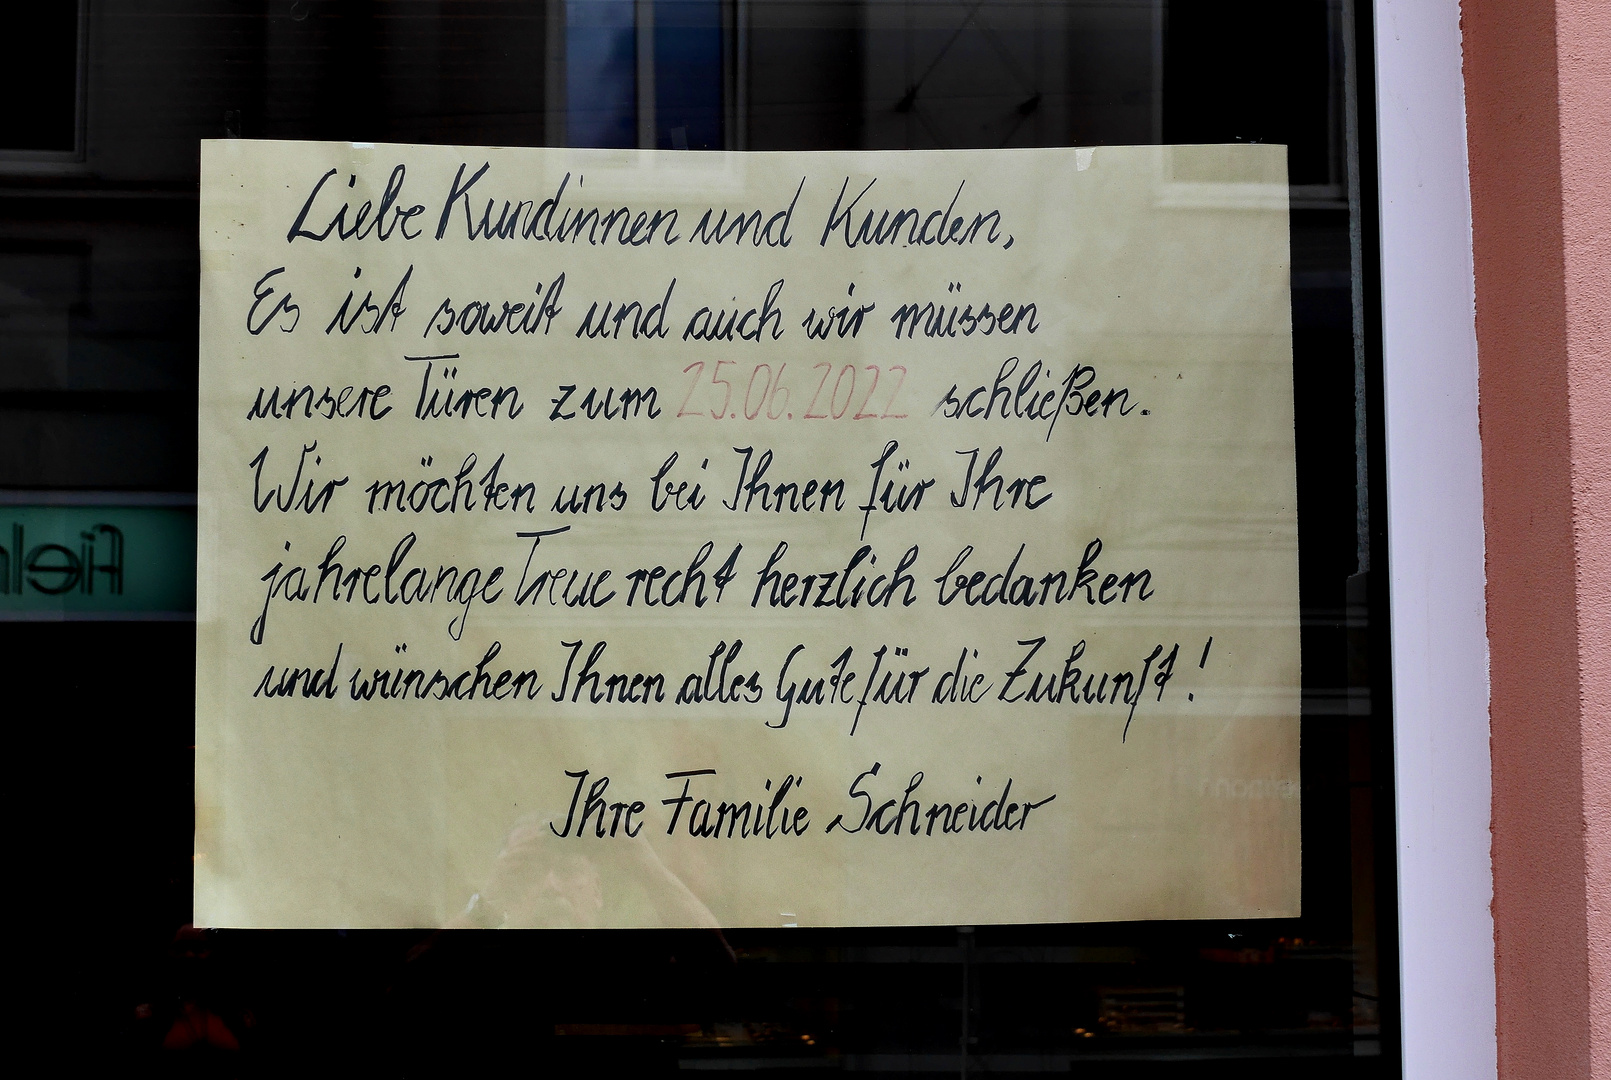 Liebe Kundinnen und Kunden,
Es ist soweit und auch wir müssen
unsere Türen zum 25.06.2022 schließen.
Wir möchten uns bei Ihnen für Ihre
jahrelange Treue recht herzlich bedanken
und wünschen Ihnen alles Gute für die Zukunft!
Ihre Familie Schneider